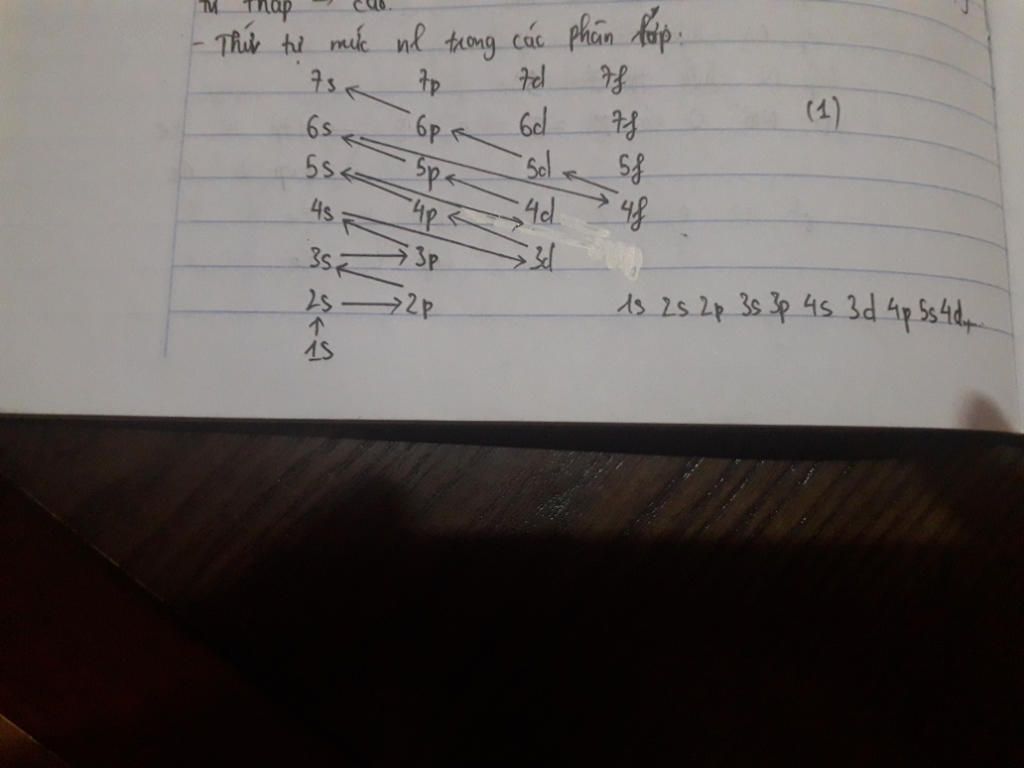 từ thấp → cao.
- Thứ tự mức nl trong các phân lớp:
7s 7p 7d 7f
6s 6p 6d 7f (1)
5s 5p 5d 5f
4s 4p 4d 4f
3s 3p 3d
2s 2p 1s 2s 2p 3s 3p 4s 3d 4p 5s 4d...
1s